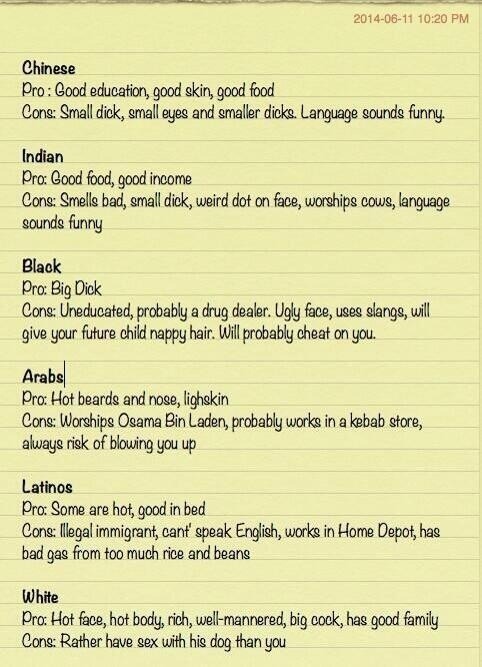 2014-06-11 10:20 PM
Chinese
Pro : Good education, good skin, good food
Cons: Small dick, small eyes and smaller dicks. Language sounds funny.
Indian
Pro: Good food, good income
Cons: Smells bad, small dick, weird dot on face, worships cows, language
sounds funny
Black
Pro: Big Dick
Cons: Uneducated, probably a drug dealer. Ugly face, uses slangs, will
give your future child nappy hair. Will probably cheat on you.
Arabs
Pro: Hot beards and nose, lighskin
Cons: Worships Osama Bin Laden, probably works in a kebab store,
always risk of blowing you up
Latinos
Pro: Some are hot, good in bed
Cons: Illegal immigrant, cant' speak English, works in Home Depot, has
bad gas from too much rice and beans
White
Pro: Hot face, hot body, rich, well-mannered, big cock, has good family
Cons: Rather have sex with his dog than you